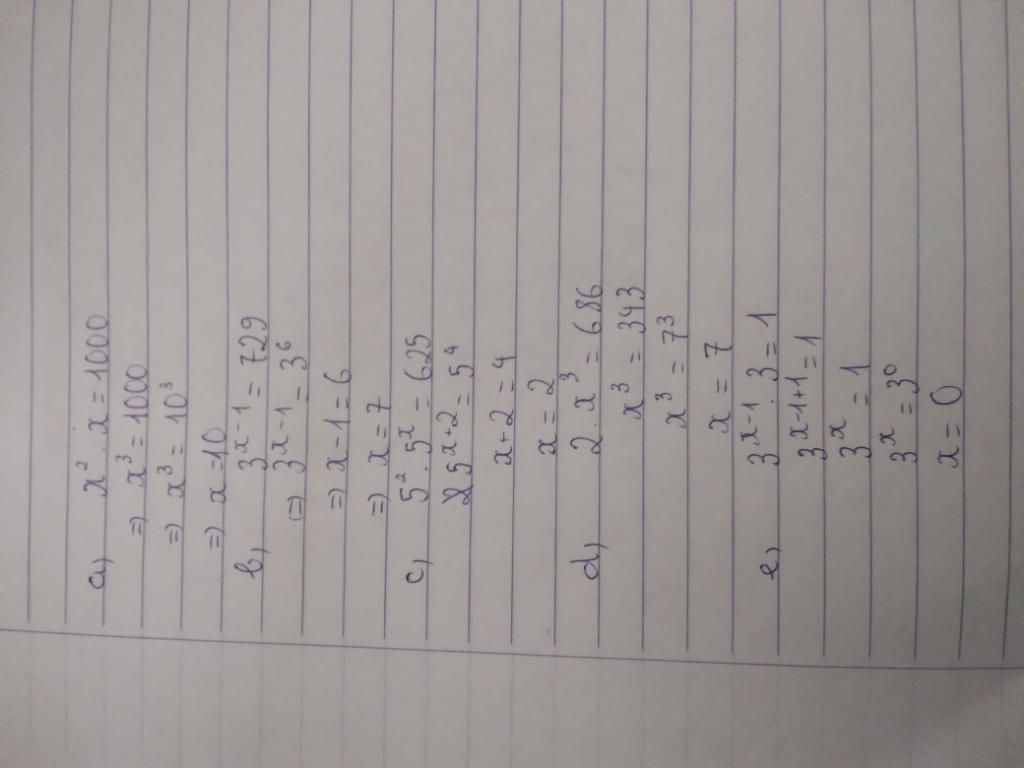 a) x² . x = 1000
=) x³ = 1000
=) x³ = 10³
=) x = 10
b) 3ˣ⁻¹ = 729
(=) 3ˣ⁻¹ = 3⁶
=) x-1 = 6
=) x = 7
c) 5² . 5ˣ = 625
5ˣ⁺² = 5⁴
x+2 = 4
x = 2
d) 2 . x³ = 686
x³ = 343
x³ = 7³
x = 7
e) 3ˣ⁻¹ . 3 = 1
3ˣ⁻¹⁺¹ = 1
3ˣ = 1
3ˣ = 3⁰
x = 0